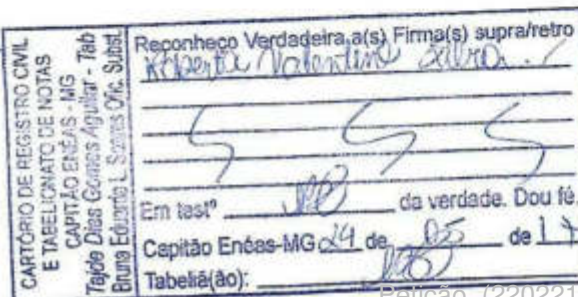 CARTÓRIO DE REGISTRO CIVIL
E TABELIONATO DE NOTAS
CAPITÃO ENÉAS - MG
Tajde Dias Gomes Aguilar - Tab
Bruna Eduarda L. Soares Ofic. Subst.
Reconheço Verdadeira,a(s) Firma(s) supra/retro
Roberta Valentino Silva
Em testº da verdade. Dou fé.
Capitão Enéas-MG 24 de 05 de 17
Tabeliã(ão):
Petição (220221